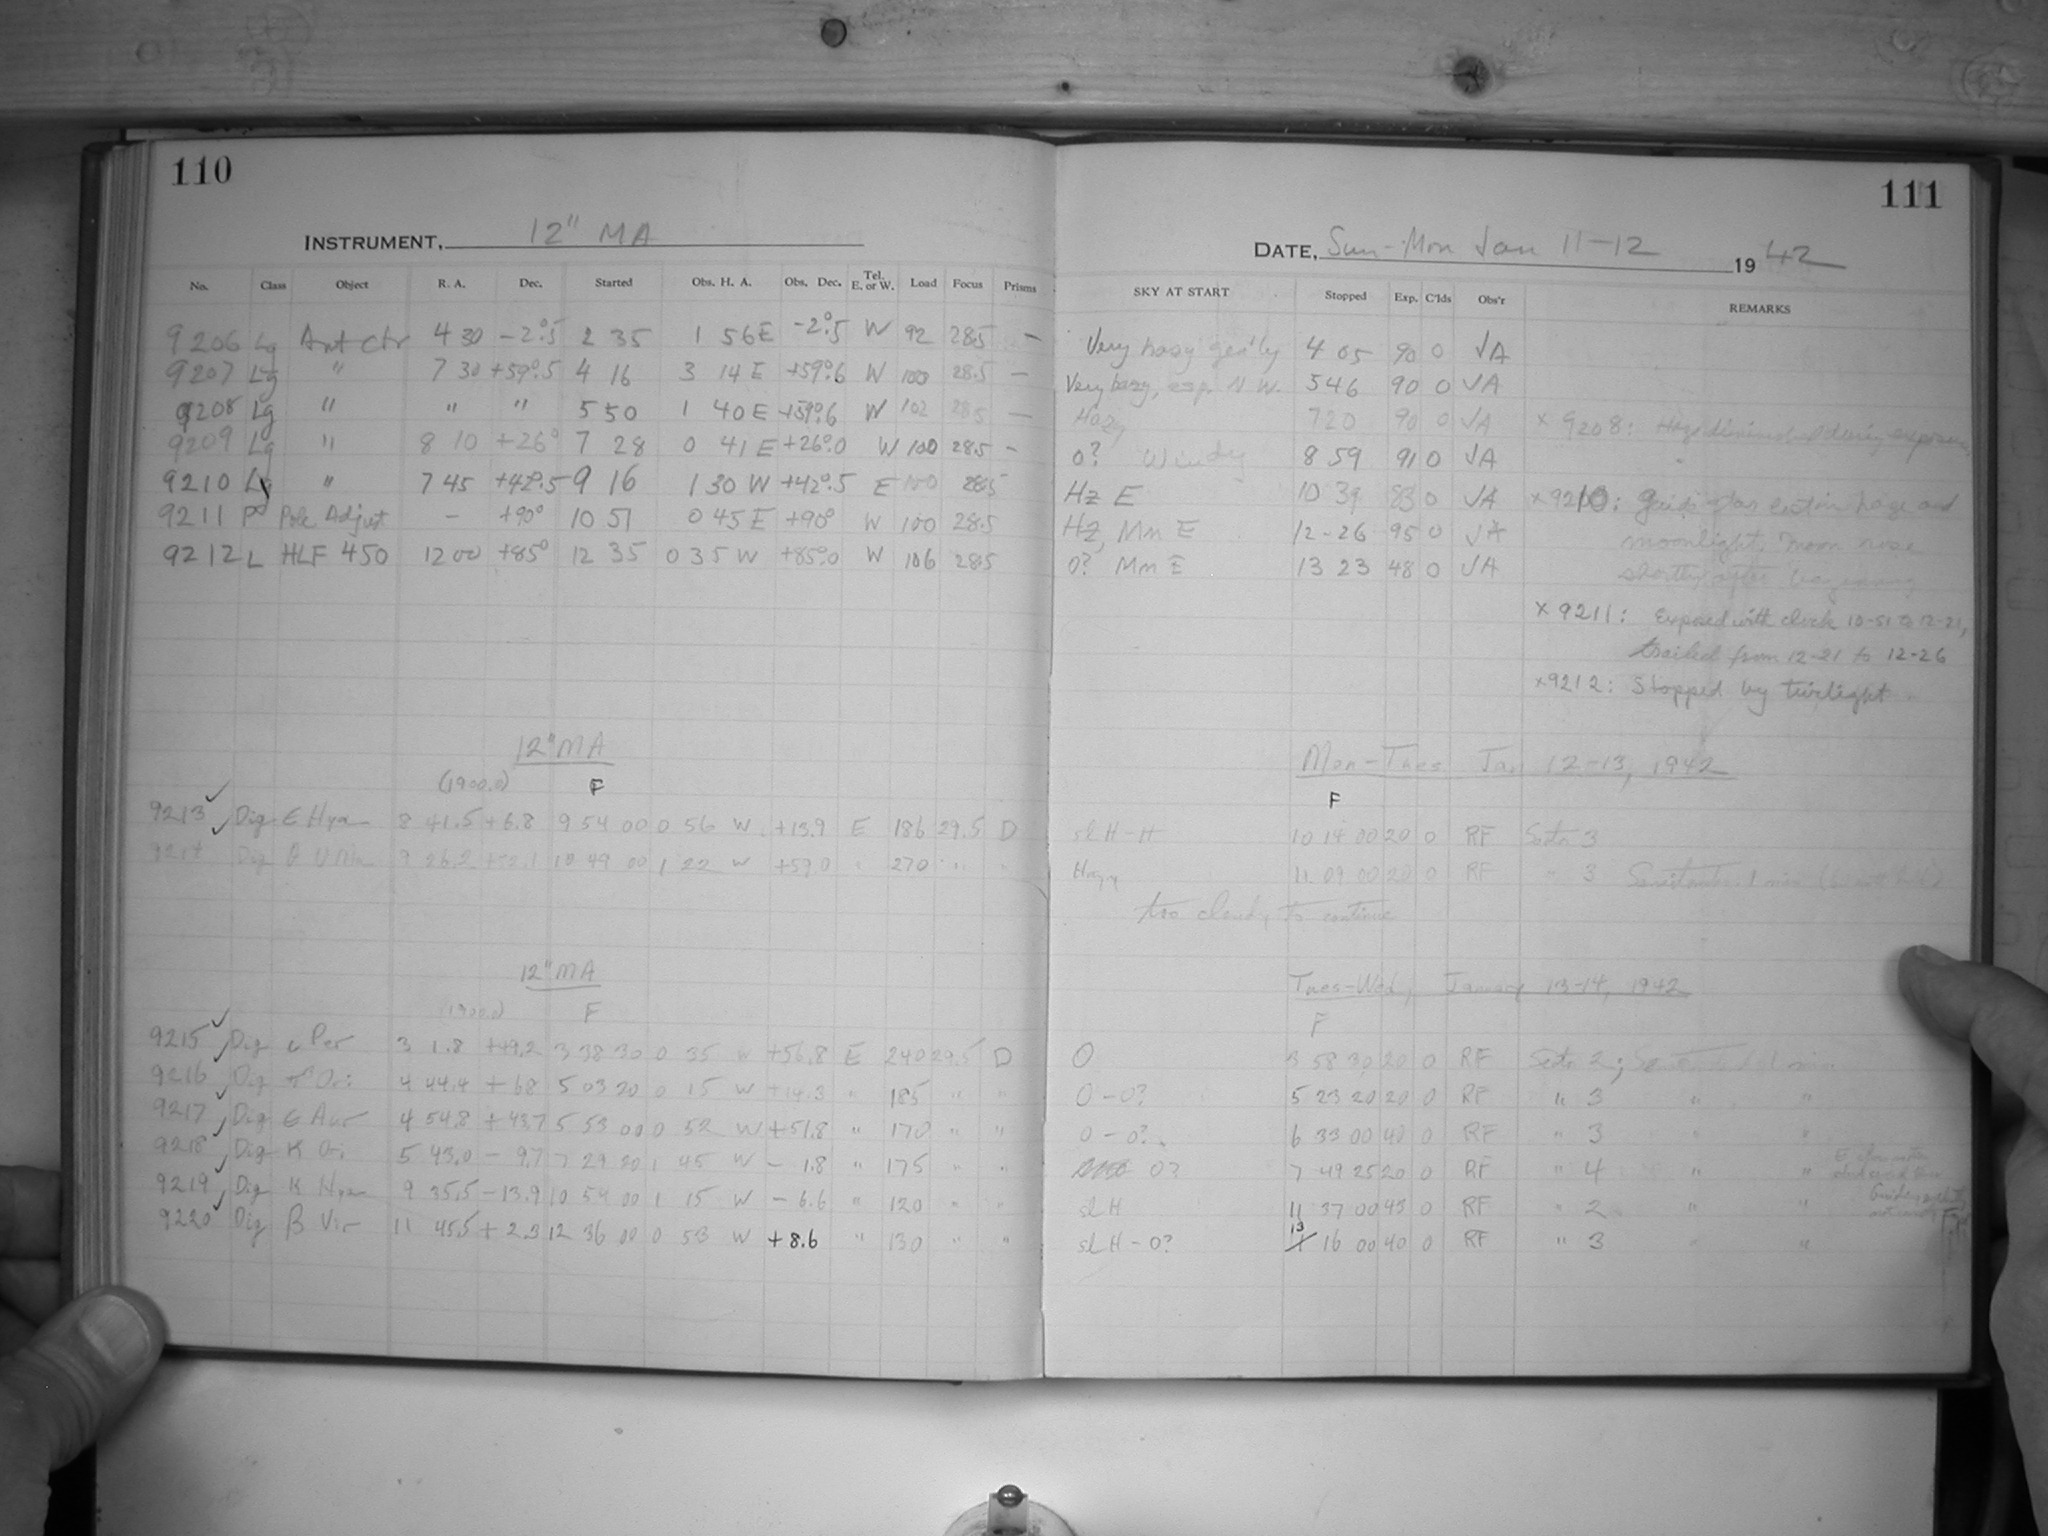 110
INSTRUMENT, 12" MA
No. Class Object R. A. Dec. Started Obs. H. A. Obs. Dec. Tel. E. or W. Load Focus Prisms
9206 Lg Ant Ctr 4 30 -2°.5 2 35 1 56 E -2°.5 W 92 28.5 —
9207 Lg " 7 30 +59°.5 4 16 3 14 E +59°.6 W 100 28.5 —
9208 Lg " " " 5 50 1 40 E +59°.6 W 102 28.5 —
9209 Lg " 8 10 +26° 7 28 0 41 E +26°.0 W 100 28.5 —
9210 Lg " 7 45 +42°.5 9 16 1 30 W +42°.5 E 100 28.5
9211 P Pole Adjust — +90° 10 51 0 45 E +90° W 100 28.5
9212 L HLF 450 12 00 +85° 12 35 0 35 W +85°.0 W 106 28.5
12" MA
(1900.0) F
9213 Dig ε Hya 8 41.5 +6.8 9 54 00 0 56 W +13.9 E 186 29.5 D
9214 Dig θ UMa 9 26.2 +52.1 10 49 00 1 22 W +59.0 " 270 " "
12" MA
(1900.0) F
9215 Dig ι Per 3 1.8 +49.2 3 38 30 0 35 W +56.8 E 240 29.5 D
9216 Dig Ori 4 44.4 +6.8 5 03 20 0 15 W +14.3 " 185 " "
9217 Dig ε Aur 4 54.8 +43.7 5 53 00 0 52 W +51.8 " 170 " "
9218 Dig κ Ori 5 43.0 -9.7 7 29 20 1 45 W -1.8 " 175 " "
9219 Dig κ Hya 9 35.5 -13.9 10 54 00 1 15 W -6.6 " 120 " "
9220 Dig β Vir 11 45.5 +2.3 12 36 00 0 53 W +8.6 " 130 " "
111
DATE, Sun-Mon Jan 11-12 1942
SKY AT START Stopped Exp. C'lds Obs'r REMARKS
Very hazy gen'ly 4 05 90 0 JA
Very hazy, esp. N.W. 5 46 90 0 JA
Hazy 7 20 90 0 JA × 9208: Haze diminished during exposure
0? Windy 8 59 91 0 JA
Hz E 10 39 83 0 JA × 9210: guide star haze and
Hz, Mn E 12-26 95 0 JA moonlight. Moon rose
0? Mn E 13 23 48 0 JA shortly after beginning
× 9211: Exposed with clock 10-51 to 12-21,
trailed from 12-21 to 12-26
× 9212: Stopped by twilight
Mon-Tues Jan 12-13, 1942
F
sl H-H 10 14 00 20 0 RF Sectr 3
Hazy 11 09 00 20 0 RF " 3 1 min
too cloudy to continue
Tues-Wed, January 13-14, 1942
F
0 3 58 30 20 0 RF Sectr 2; 1 min
0-0? 5 23 20 20 0 RF " 3 " "
0-0? 6 33 00 40 0 RF " 3 " "
0? 7 49 25 20 0 RF " 4 " "
sl H 11 37 00 43 0 RF " 2 " "
sl H-0? 13 16 00 40 0 RF " 3 " "